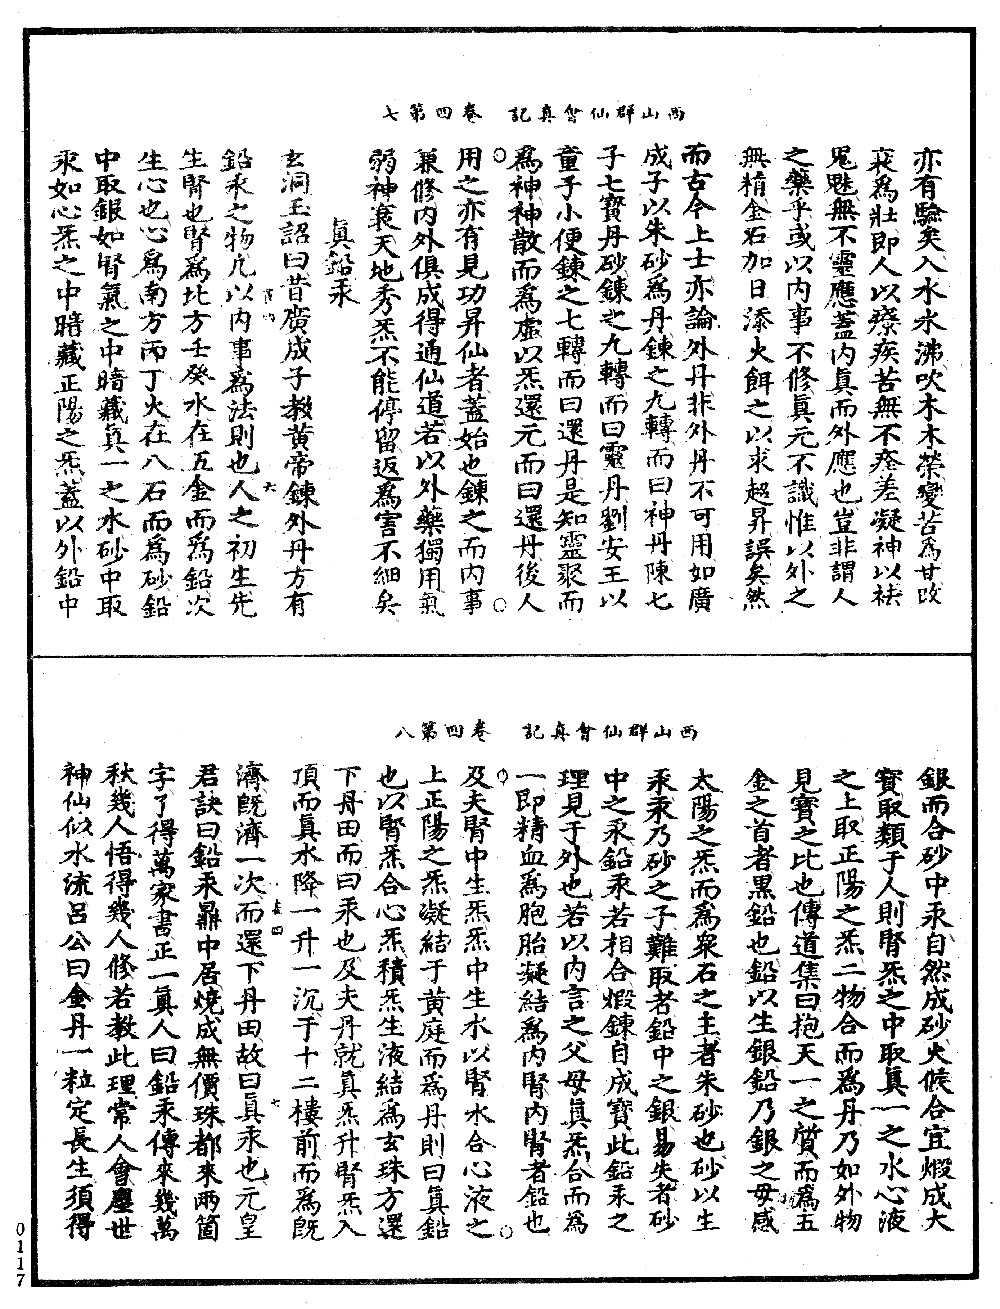 西山群仙會真記　卷四第七
亦有驗矣入水水沸吹木木榮變苦為甘改
衰為壯即人以療疾苦無不痊差凝神以祛
鬼魅無不靈應蓋內真而外應也豈非謂人
之藥乎或以內事不修真元不識惟以外之
無精金石加日添火餌之以求超昇誤矣然
而古今上士亦論外丹非外丹不可用如廣
成子以朱砂為丹鍊之九轉而曰神丹陳七
子七寶丹砂鍊之九轉而曰靈丹劉安王以
童子小便鍊之七轉而曰還丹是知靈聚而
為神神散而為虛以炁還元而曰還丹後人
用之亦有見功昇仙者蓋始也鍊之而內事
兼修內外俱成得通仙道若以外藥獨用氣
弱神衰天地秀炁不能停留返為害不細矣
真鉛汞
玄洞玉詔曰昔廣成子教黃帝鍊外丹方有
鉛汞之物凡以內事為法則也人之初生先
生腎也腎為北方壬癸水在五金而為鉛次
生心也心為南方丙丁火在八石而為砂鉛
中取銀如腎氣之中暗藏真一之水砂中取
汞如心炁之中暗藏正陽之炁蓋以外鉛中
西山群仙會真記　卷四第八
銀而合砂中汞自然成砂火候合宜煆成大
寶取類于人則腎炁之中取真一之水心液
之上取正陽之炁二物合而為丹乃如外物
見寶之比也傳道集曰抱天一之質而為五
金之首者黑鉛也鉛以生銀鉛乃銀之母感
太陽之炁而為眾石之主者朱砂也砂以生
汞汞乃砂之子難取者鉛中之銀易失者砂
中之汞鉛汞若相合煆鍊自成寶此鉛汞之
理見于外也若以內言之父母真炁合而為
一即精血為胞胎凝結為內腎內腎者鉛也
及夫腎中生炁炁中生水以腎水合心液之
上正陽之炁凝結于黃庭而為丹則曰真鉛
也以腎炁合心炁積炁生液結為玄珠方還
下丹田而曰汞也及夫丹就真炁升腎炁入
頂而真水降一升一沉于十二樓前而為既
濟既濟一次而還下丹田故曰真汞也元皇
君訣曰鉛汞鼎中居燒成無價珠都來兩箇
字了得萬家書正一真人曰鉛汞傳來幾萬
秋幾人悟得幾人修若教此理常人會塵世
神仙似水流呂公曰金丹一粒定長生須得
0117